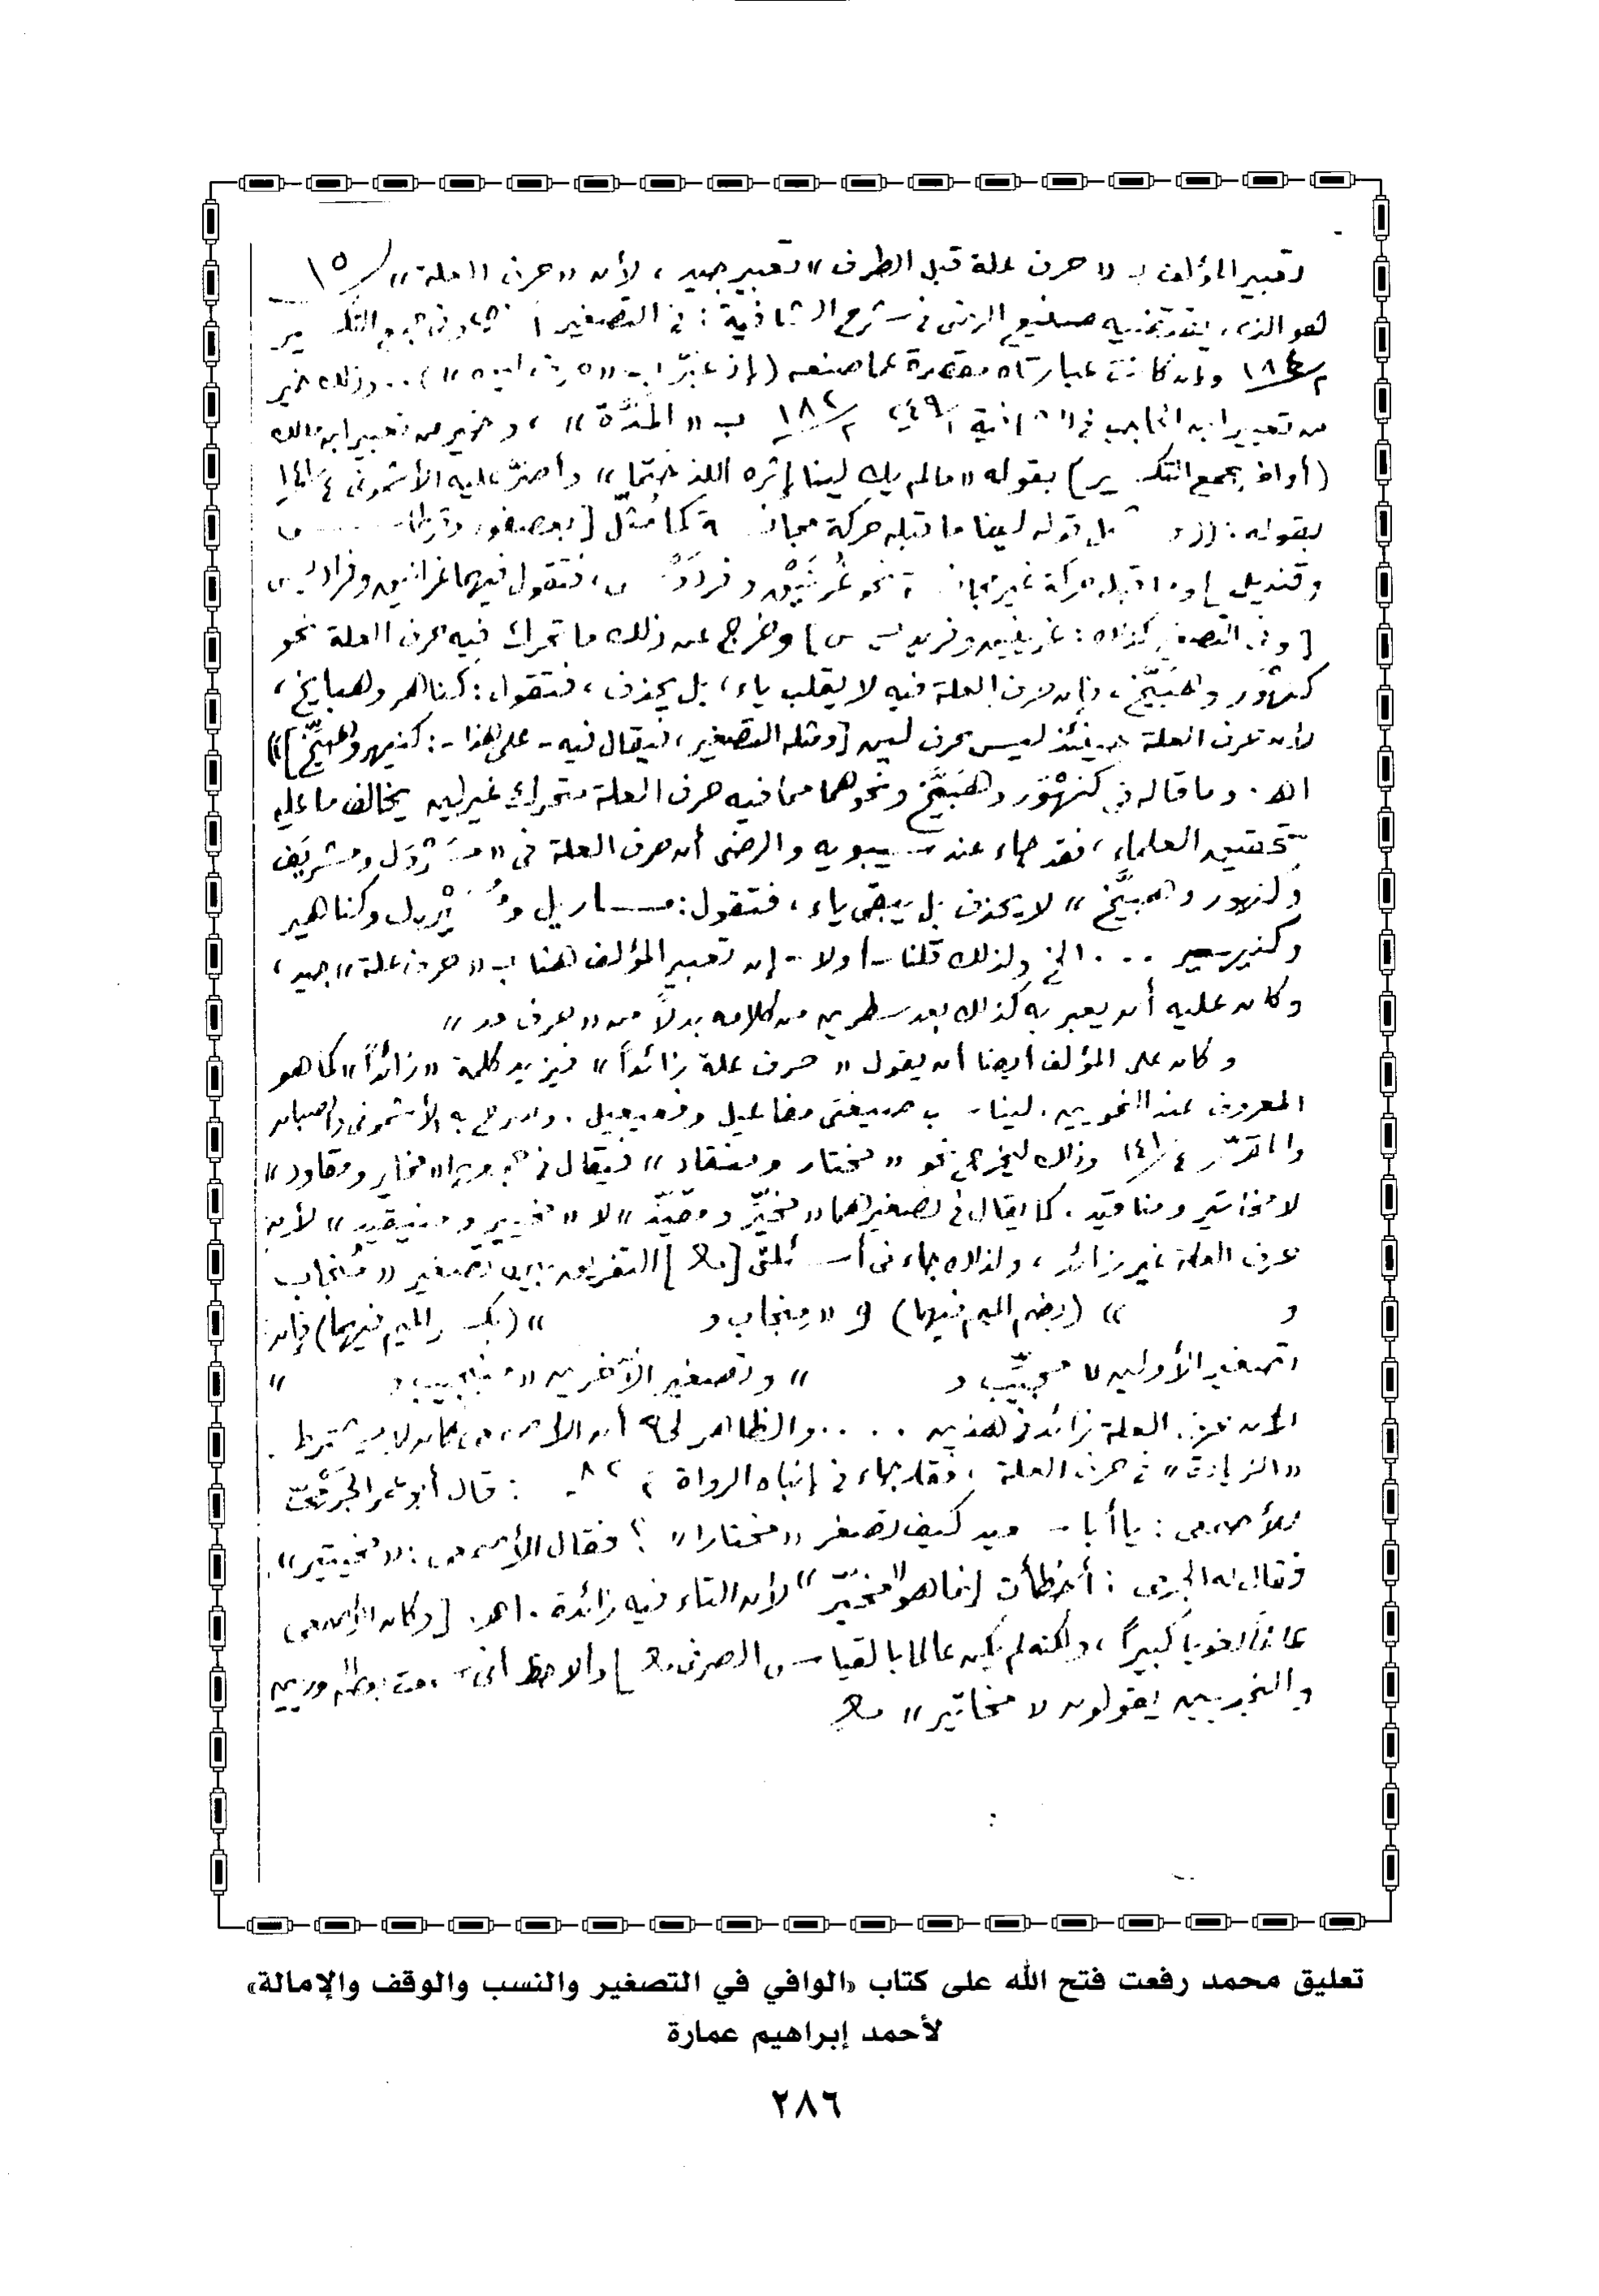 تعبير المؤلف بـ «حرف علة قبل الطرف» تعبير جيد، لأن «حرف العلة» ١٥
هو الذى صنيع الرضى فى شرح الشافية: فى التصغير وفى التكسير
١٨٤/٢ وإن كانت عبارته عما صنعه (إذ عبّر بـ ) .. وذلك خير
من تعبير ابن الحاجب فى الشافية ٢٤٩/١ ١٨٢/٢ بـ «المَدَّة»، وخير من تعبير ابن مالك
(أواخر جمع التكسير) بقوله «مالم يك لينا إثره اللذ ختما» الأشمونى ١٤٨/٤
بقوله: قوله لينا ما قبله حركة مجانسة كما مثّل [بعصفور وقرطاس
وقنديل] وما قبله حركة غير مجانسة نحو غُرْنَيْق وفردَوْس، فتقول فيهما غرانيق وفراديس
[وفى التصغير كذلك: غرينيق وفريديس] وخرج عن ذلك ما تحرك فيه حرف العلة نحو
كَنَهْوَر وهَبَيَّخ، فإن حرف العلة فيه لا يقلب ياء، بل يحذف، فتقول: كناهر وهبايخ،
لأن حرف العلة حينئذ ليس حرف لين [ومثله التصغير، فيقال فيه - على هذا -: كنيهر وهبيّخ]»
اهـ. وما قاله فى كَنَهْوَر وهَبَيَّخ ونحوهما مما فيه حرف العلة متحرك غير لين يخالف ما عليه
العلماء، فقد جاء عند سيبويه والرضى أن حرف العلة فى «مُسَرْوَل ومشريَف
وكنهور وهبيَّخ» لا يحذف بل يبقى ياء، فتقول: مساريل و وكناهير
وكنيهير ... الخ ولذلك قلنا - أولا - إن تعبير المؤلف هنا بـ «حرف علة» جيد،
وكان عليه أن يعبر به كذلك بعد سطرين من كلامه بدلاً من «حرف مد»
وكان على المؤلف أيضا أن يقول «حرف علة زائداً» فيزيد كلمة «زائداً» كما هو
المعروف عند النحويين. ليناسب صيغتى مفاعيل وفعيعيل. وصرح به الأشمونى والصبان
١٤٨/٤ وذلك ليخرج نحو «مختار ومنقاد» فيقال فى جمعهما «مخاير ومقاود»
لا مخاتير ومناقيد. كما يقال فى تصغيرهما «مخيّر ومقيّد» لا «مخيتير ومنيقيد» لأن
حرف العلة غير زائد، ولذلك جاء فى أسئلتى [ ] التفريق بين تصغير «مُنجاب
و » (بضم الميم فيهما) و «مِنجاب و » (بكسر الميم فيهما) فإن
تصغير الأولين «مجيّب و » وتصغير الآخرين «منيجيب و »
لأن حرف العلة زائد فى هذين .... والظاهر لى أن الأصمعى كان لا يشترط
«الزيادة» فى حرف العلة، فقد جاء فى إنباه الرواة : قال أبو عمر الجَرْمى
للأصمعى: يا أبا سعيد كيف تصغر «مختارا»؟ فقال الأصمعى: «مخيتير».
فقال له الجرمى: أخطأت إنما هو «مخيّر» لأن التاء فيه زائدة. اهـ. [وكان الأصمعى
عالماً لغويا كبيراً، ولكنه لم يكن عالما بالقياس الصرفى ] وألاحظ أنى سمعت
يقولون «مخاتير»
تعليق محمد رفعت فتح الله على كتاب «الوافي في التصغير والنسب والوقف والإمالة»
لأحمد إبراهيم عمارة
٢٨٦